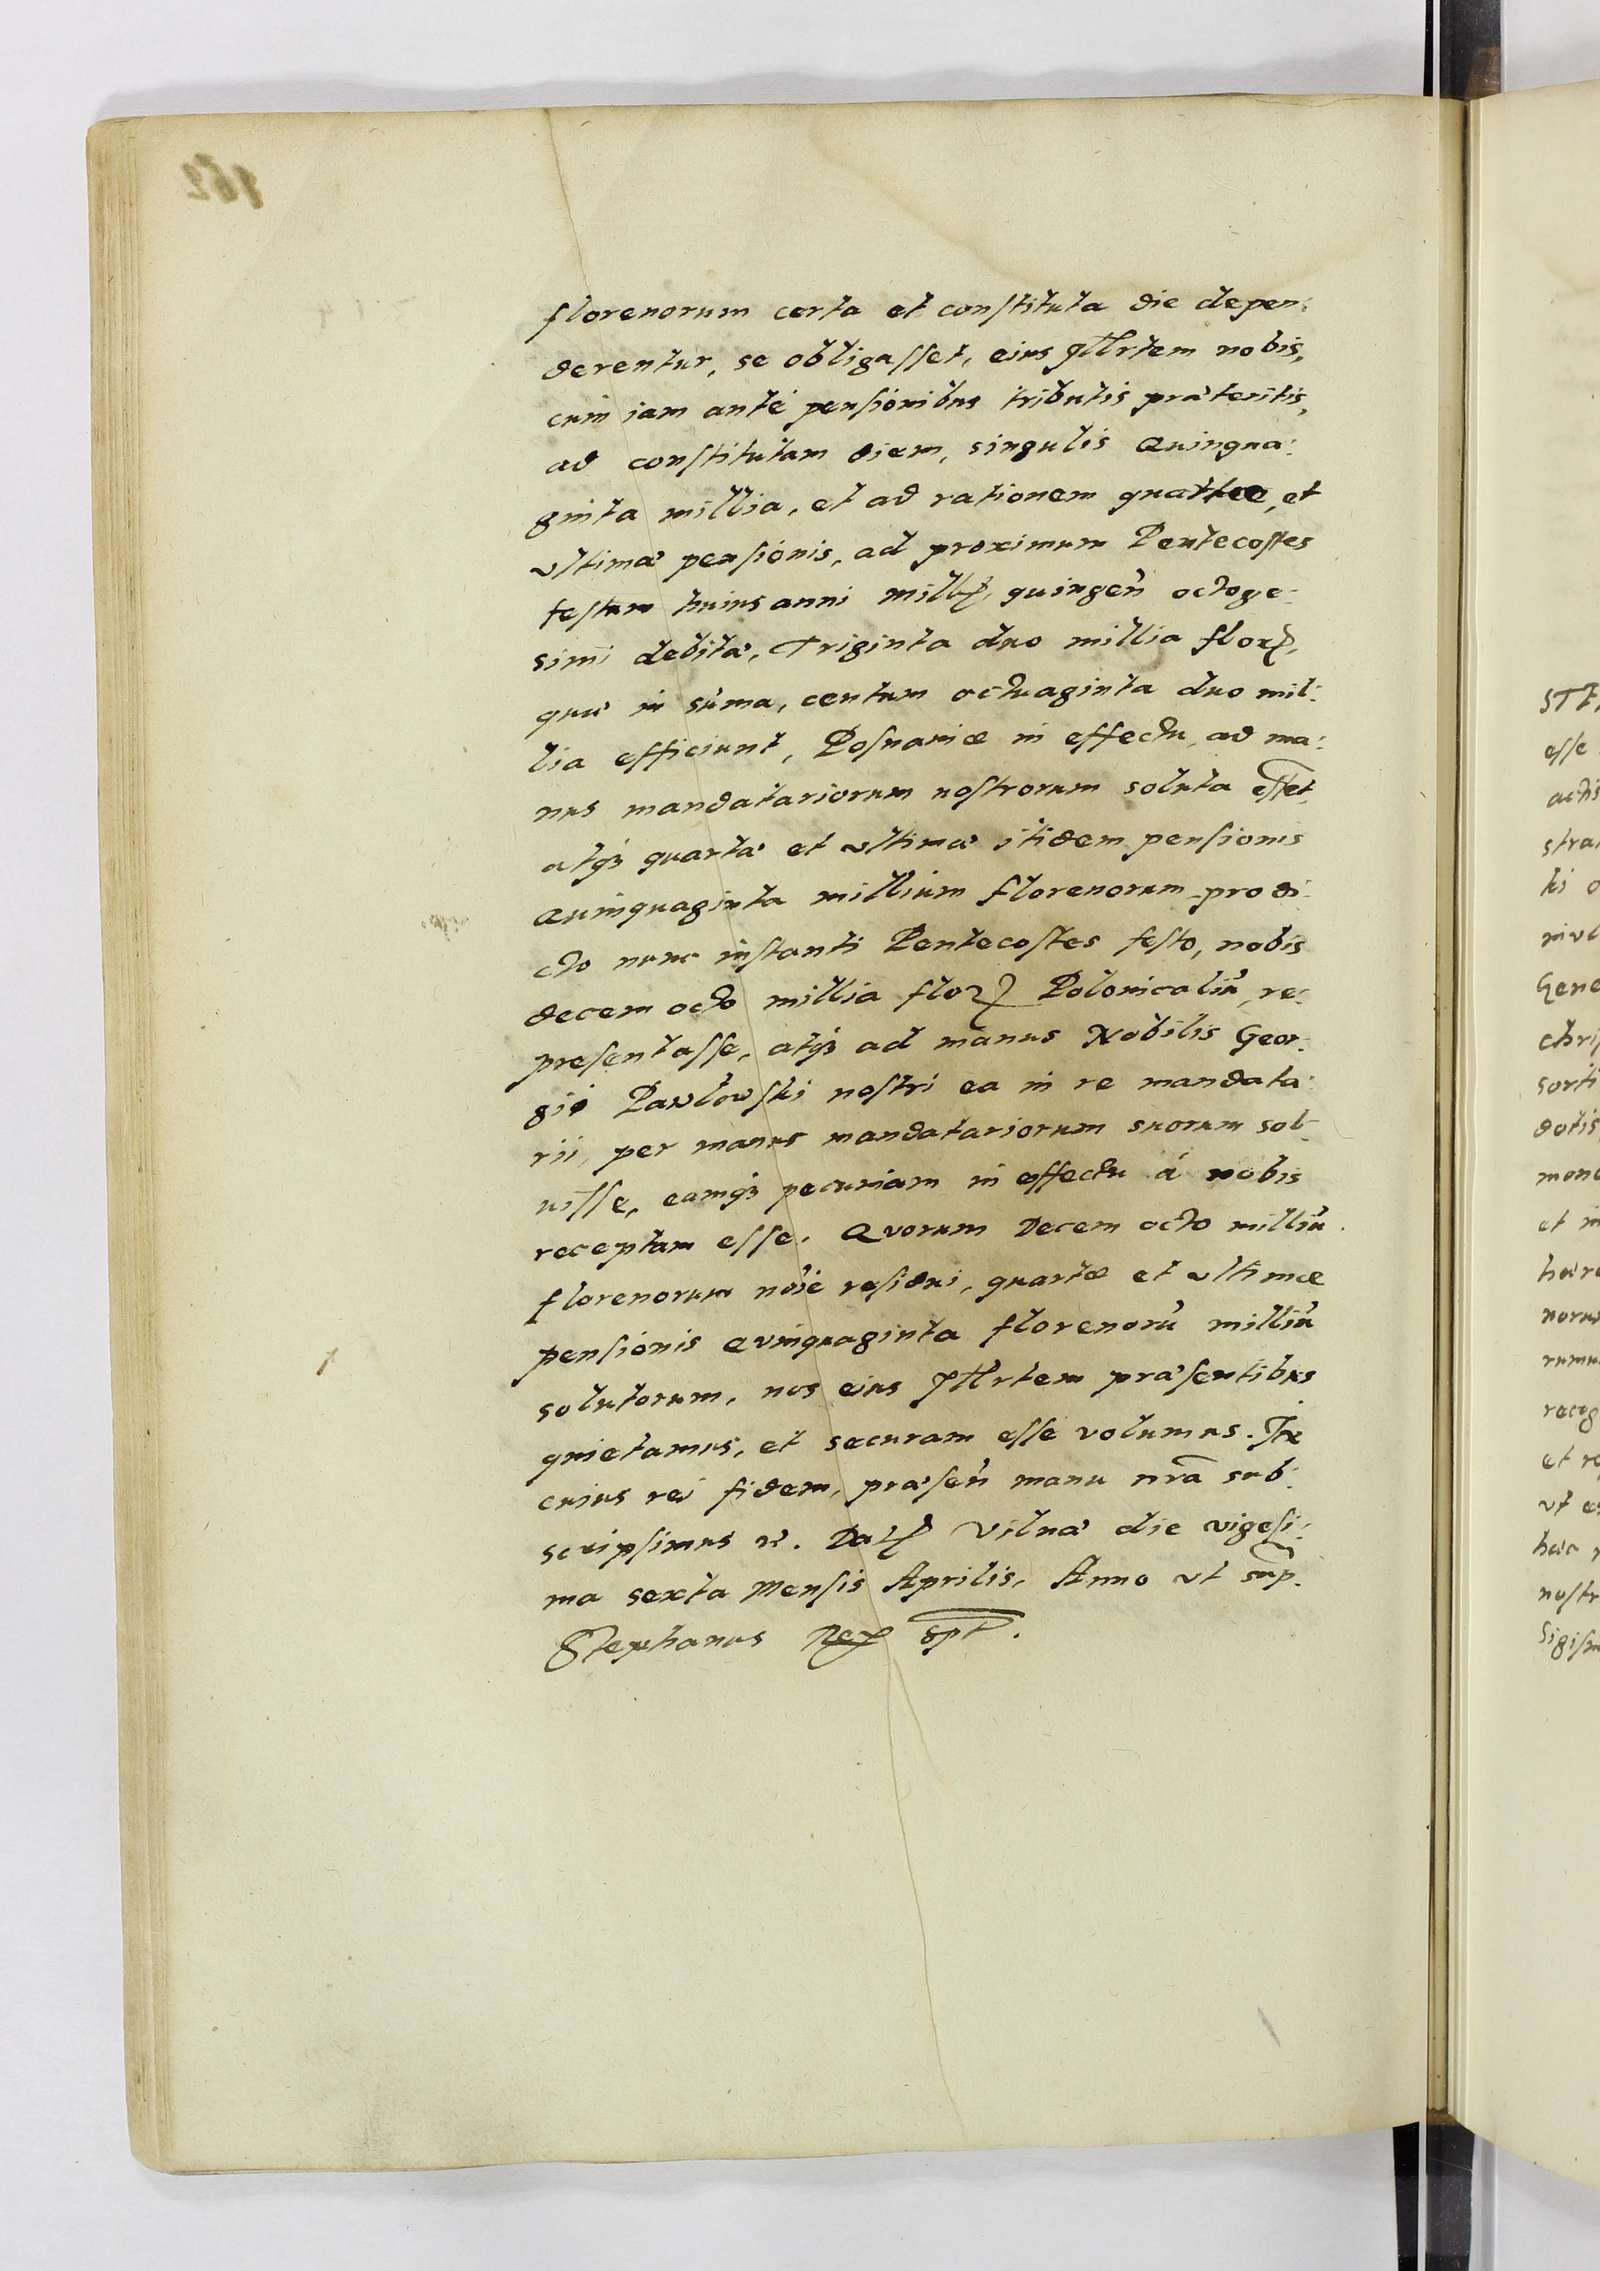 florenorum certa et constituta die depen:
derentur, se obligasset, eius Illrtem nobis,
cum iam antè pensionibus tributis præteritis,
ad constitutam diem, singulis Quinqua:
ginta millia, et ad rationem quartæ, et
vltimæ pensionis, ad proximum Pentecostes
festum huius anni mill quingeñ octoge:
simi debitæ, Triginta duo millia flor
quæ in sũma, centum octuaginta duo mil:
lia efficiunt, Posnaniæ in effectu, ad ma:
nus mandatariorum nostrorum soluta esset
atq3 quartæ et vltimæ itidem pensionis
Quinquaginta millium florenorum pro di:
cto nunc instanti Pentecostes festo, nobis
decem octo millia flor Polonicaliũ re:
presentasse, atq3 ad manus Nobilis Geor:
gii Pawlowski nostri ea in re mandata:
rii, per manus mandatariorum suorum sol:
uisse, eamq3 pecuniam in effectu à nobis
receptam esse. Quorum Decem octo milliũ
florenorum nõie residui, quartæ et vltimæ
pensionis Quinquaginta florenorũ milliũ
solutorum, nos eius Illrtem præsentibus
quietamus, et securam esse volumus. In
cuius rei fidem, præseñ manu nr̃a sub:
scripsimus Dat Vilnæ die vigesi:
ma sexta Mensis Aprilis, Anno vt sup̃.
Stephanus Rex spt.
162
STE
esse
actis
stra
ki o
Gene
chris
sorti
dotis
mone
et in
hære
norum
recog
et re
vt e
hæc
nostr
Sigism